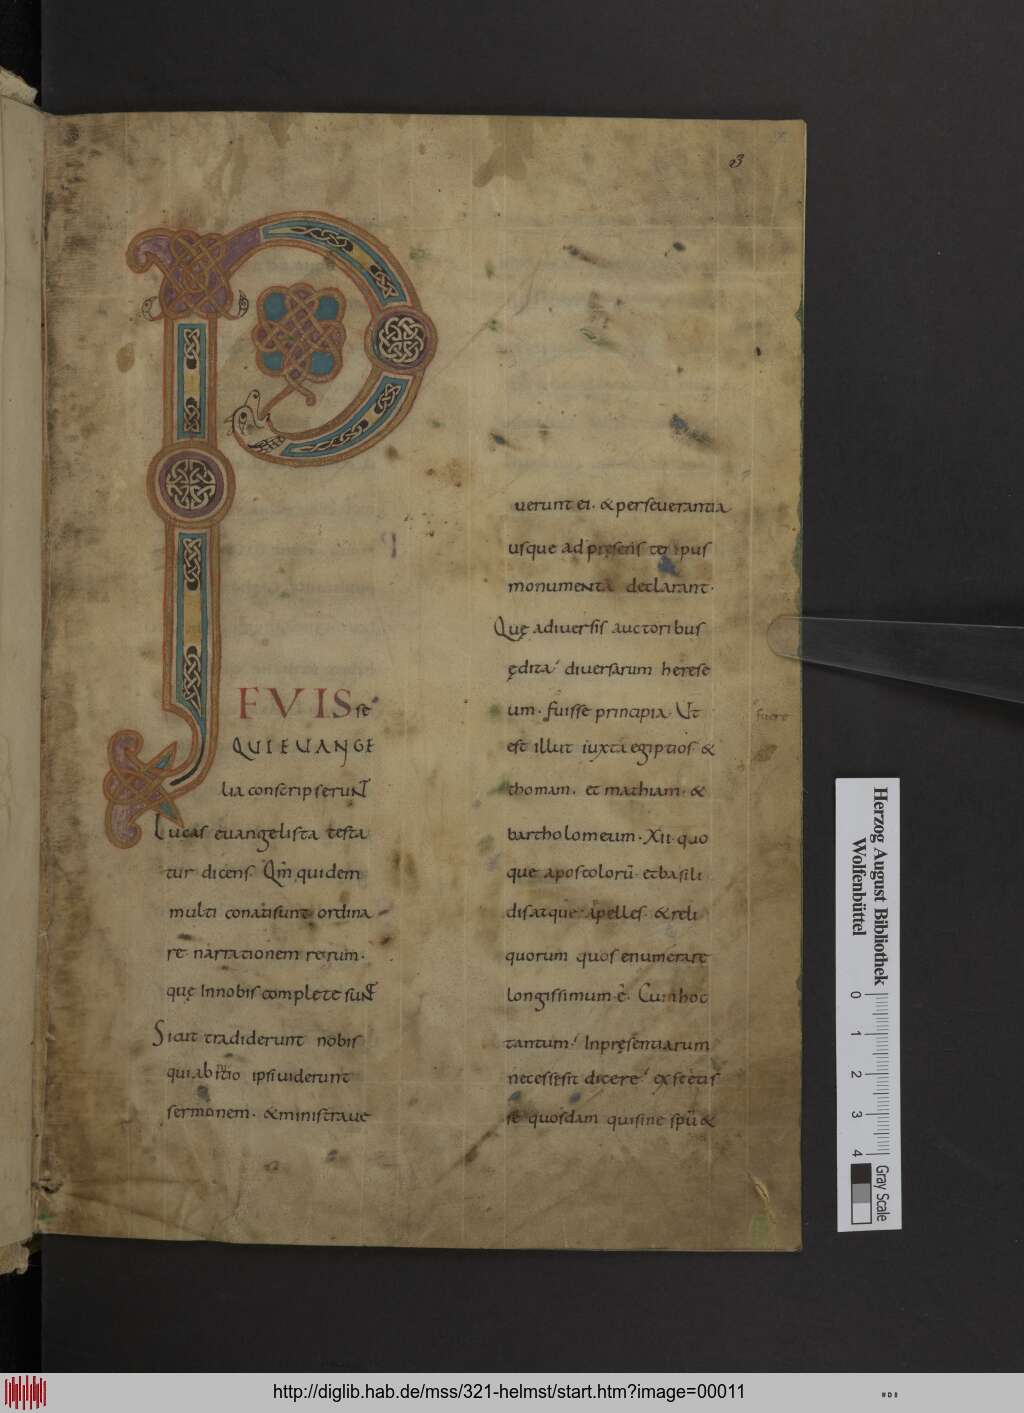 3
P
FUISse
QUIEUANGE
lia conscripserunt
Lucas euangelista testa
tur dicens. Qm̄ quidem
multi conatisunt ordina
re narrationem rerum.
quę Innobis complete sunt
Sicut tradiderunt nobis
qui ab initio ipsi uiderunt
sermonem. & ministraue
uerunt ei. & perseuerantia
usque ad pręsens tempus
monumenta declarant.
Quę adiuersis auctoribus
ędita diuersarum herese
um. fuisse principia. Ut
est illut iuxta egiptios &
thomam. et mathiam. &
bartholomeum. XII. quo
que apostolorū. et basili
disatque apelles. & reli
quorum quos enumerare
longissimum .ē. Cumhoc
tantum. Inpręsentiarum
necessesit dicere exstetis
se quosdam quisine spū &
fuere
Herzog August Bibliothek
Wolfenbüttel
0 1 2 3 4
Gray Scale
http://diglib.hab.de/mss/321-helmst/start.htm?image=00011